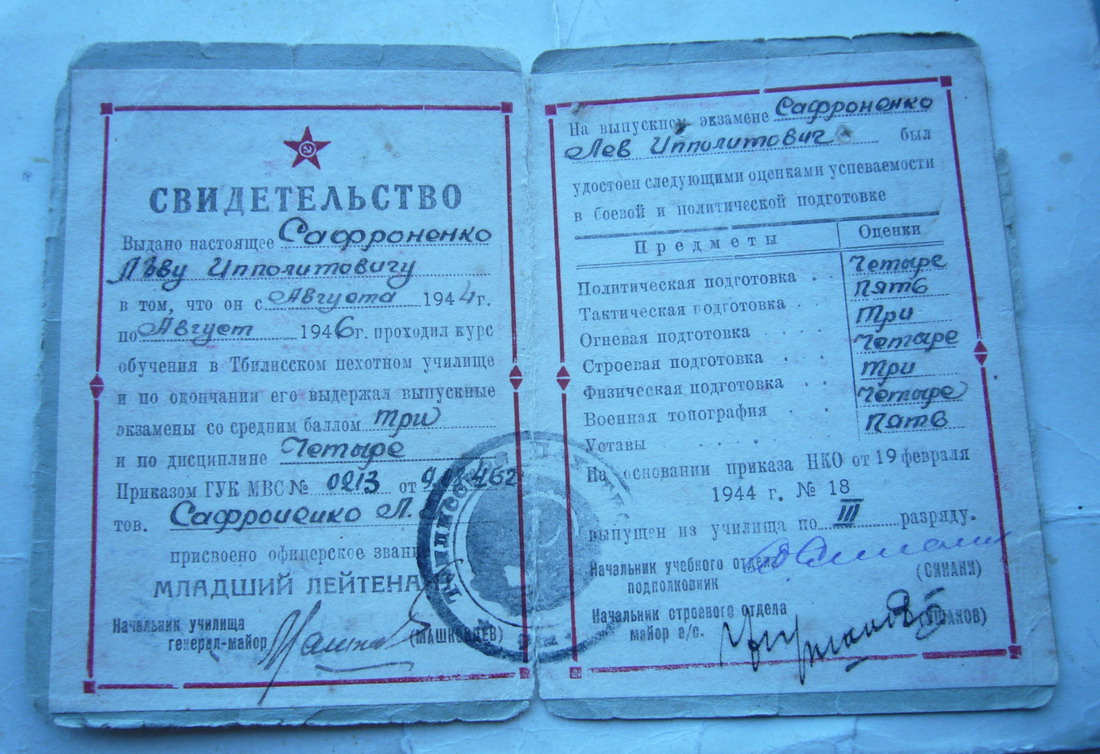 СВИДЕТЕЛЬСТВО
Выдано настоящее Сафроненко
Льву Ипполитовичу
в том, что он с Августа 1944 г.
по Август 1946 г. проходил курс
обучения в Тбилисском пехотном училище
и по окончании его выдержал выпускные
экзамены со средним баллом три
и по дисциплине Четыре
Приказом ГУК МВС № 0213 от
тов. Сафроненко Л.
присвоено офицерское звание
МЛАДШИЙ ЛЕЙТЕНАНТ
Начальник училища
генерал-майор (МАШКОВЦЕВ)
На выпускном экзамене Сафроненко
Лев Ипполитович был
удостоен следующими оценками успеваемости
в боевой и политической подготовке
Предметы Оценки
Политическая подготовка . . Четыре
Тактическая подготовка . пять
Огневая подготовка Три
Строевая подготовка . . . Четыре
Физическая подготовка . . три
Военная топография . . Четыре
Уставы . . . . . Пять
На основании приказа НКО от 19 февраля
1944 г. № 18
выпущен из училища по III разряду.
Начальник учебного отдела
подполковник (СИНАНИ)
Начальник строевого отдела
майор а/с. (УШАКОВ)